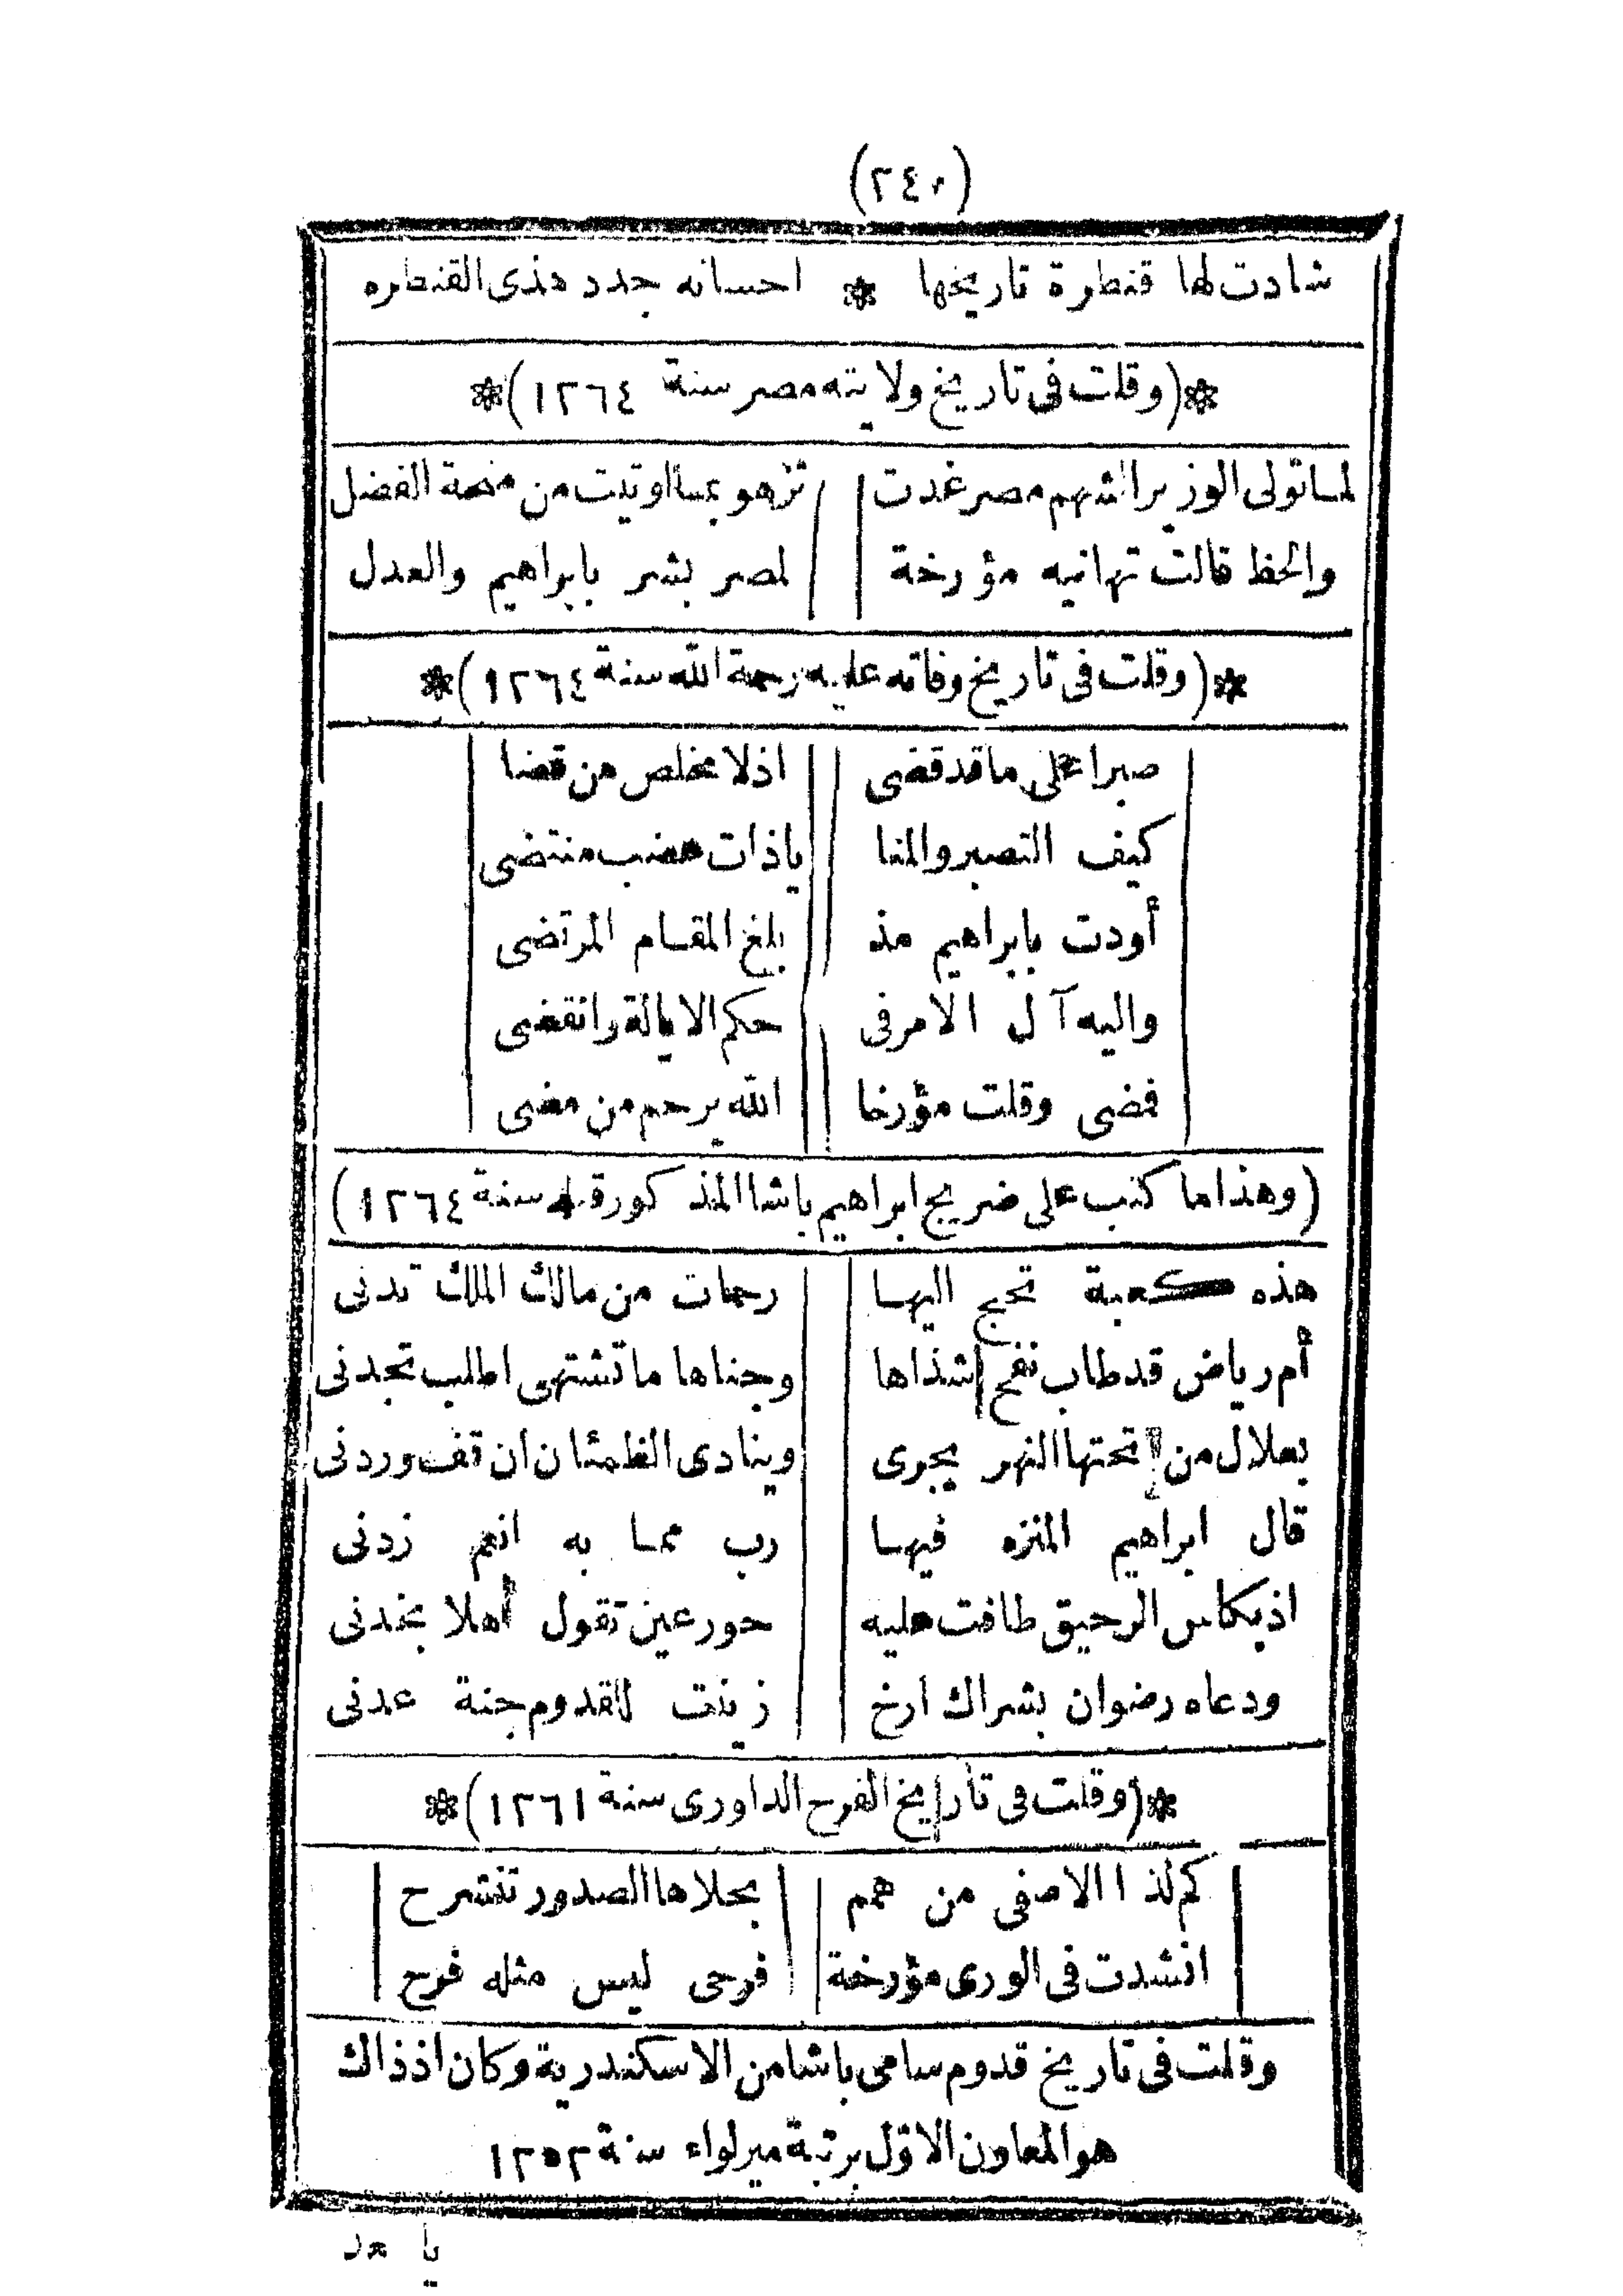 (٢٤٠)
شادت لها قنطرة تاريخها * احسانه جدد هذى القنطره
*(وقلت فى تاريخ ولايته مصر سنة ١٢٦٤)*
لما تولى الوزير الشهم مصر غدت تزهو بما اوتيت من منحة الفضل
والحظ قالت تهانيه مؤرخة لمصر بشر بابراهيم والعدل
*(وقلت فى تاريخ وفاته عليه رحمة الله سنة ١٢٦٤)*
صبرا على ما قد قضى اذ لا مخلص من قضا
كيف التصبر والمنا يا ذات عضب منتضى
أودت بابراهيم مذ بلغ المقام المرتضى
واليه آل الامر فى حكم الايالة وانقضى
فمضى وقلت مؤرخا الله يرحم من مضى
(وهذا ما كتب على ضريح ابراهيم باشا المذكورة سنة ١٢٦٤)
هذه كعبة تحج اليها رحمات من مالك الملك تدنى
أم رياض قد طاب نفح شذاها وجناها ما تشتهى اطلب تجدنى
بعلال من تحتها النهر يجرى وينادى الظمئان ان قف وردنى
قال ابراهيم المنزه فيها رب مما به انعم زدنى
اذ بكاس الرحيق طافت عليه حور عين تقول أهلا بخدنى
ودعاه رضوان بشراك ارخ زينت للقدوم جنة عدنى
*(وقلت فى تاريخ الفرح الداورى سنة ١٢٦١)*
كم لذا الاصفى من همم بحلاها الصدور تنشرح
انشدت فى الورى مؤرخة فرحى ليس مثله فرح
وقلت فى تاريخ قدوم سامى باشا من الاسكندرية وكان اذ ذاك
هو المعاون الاول برتبة ميرلواء سنة ١٢٥٢
يا